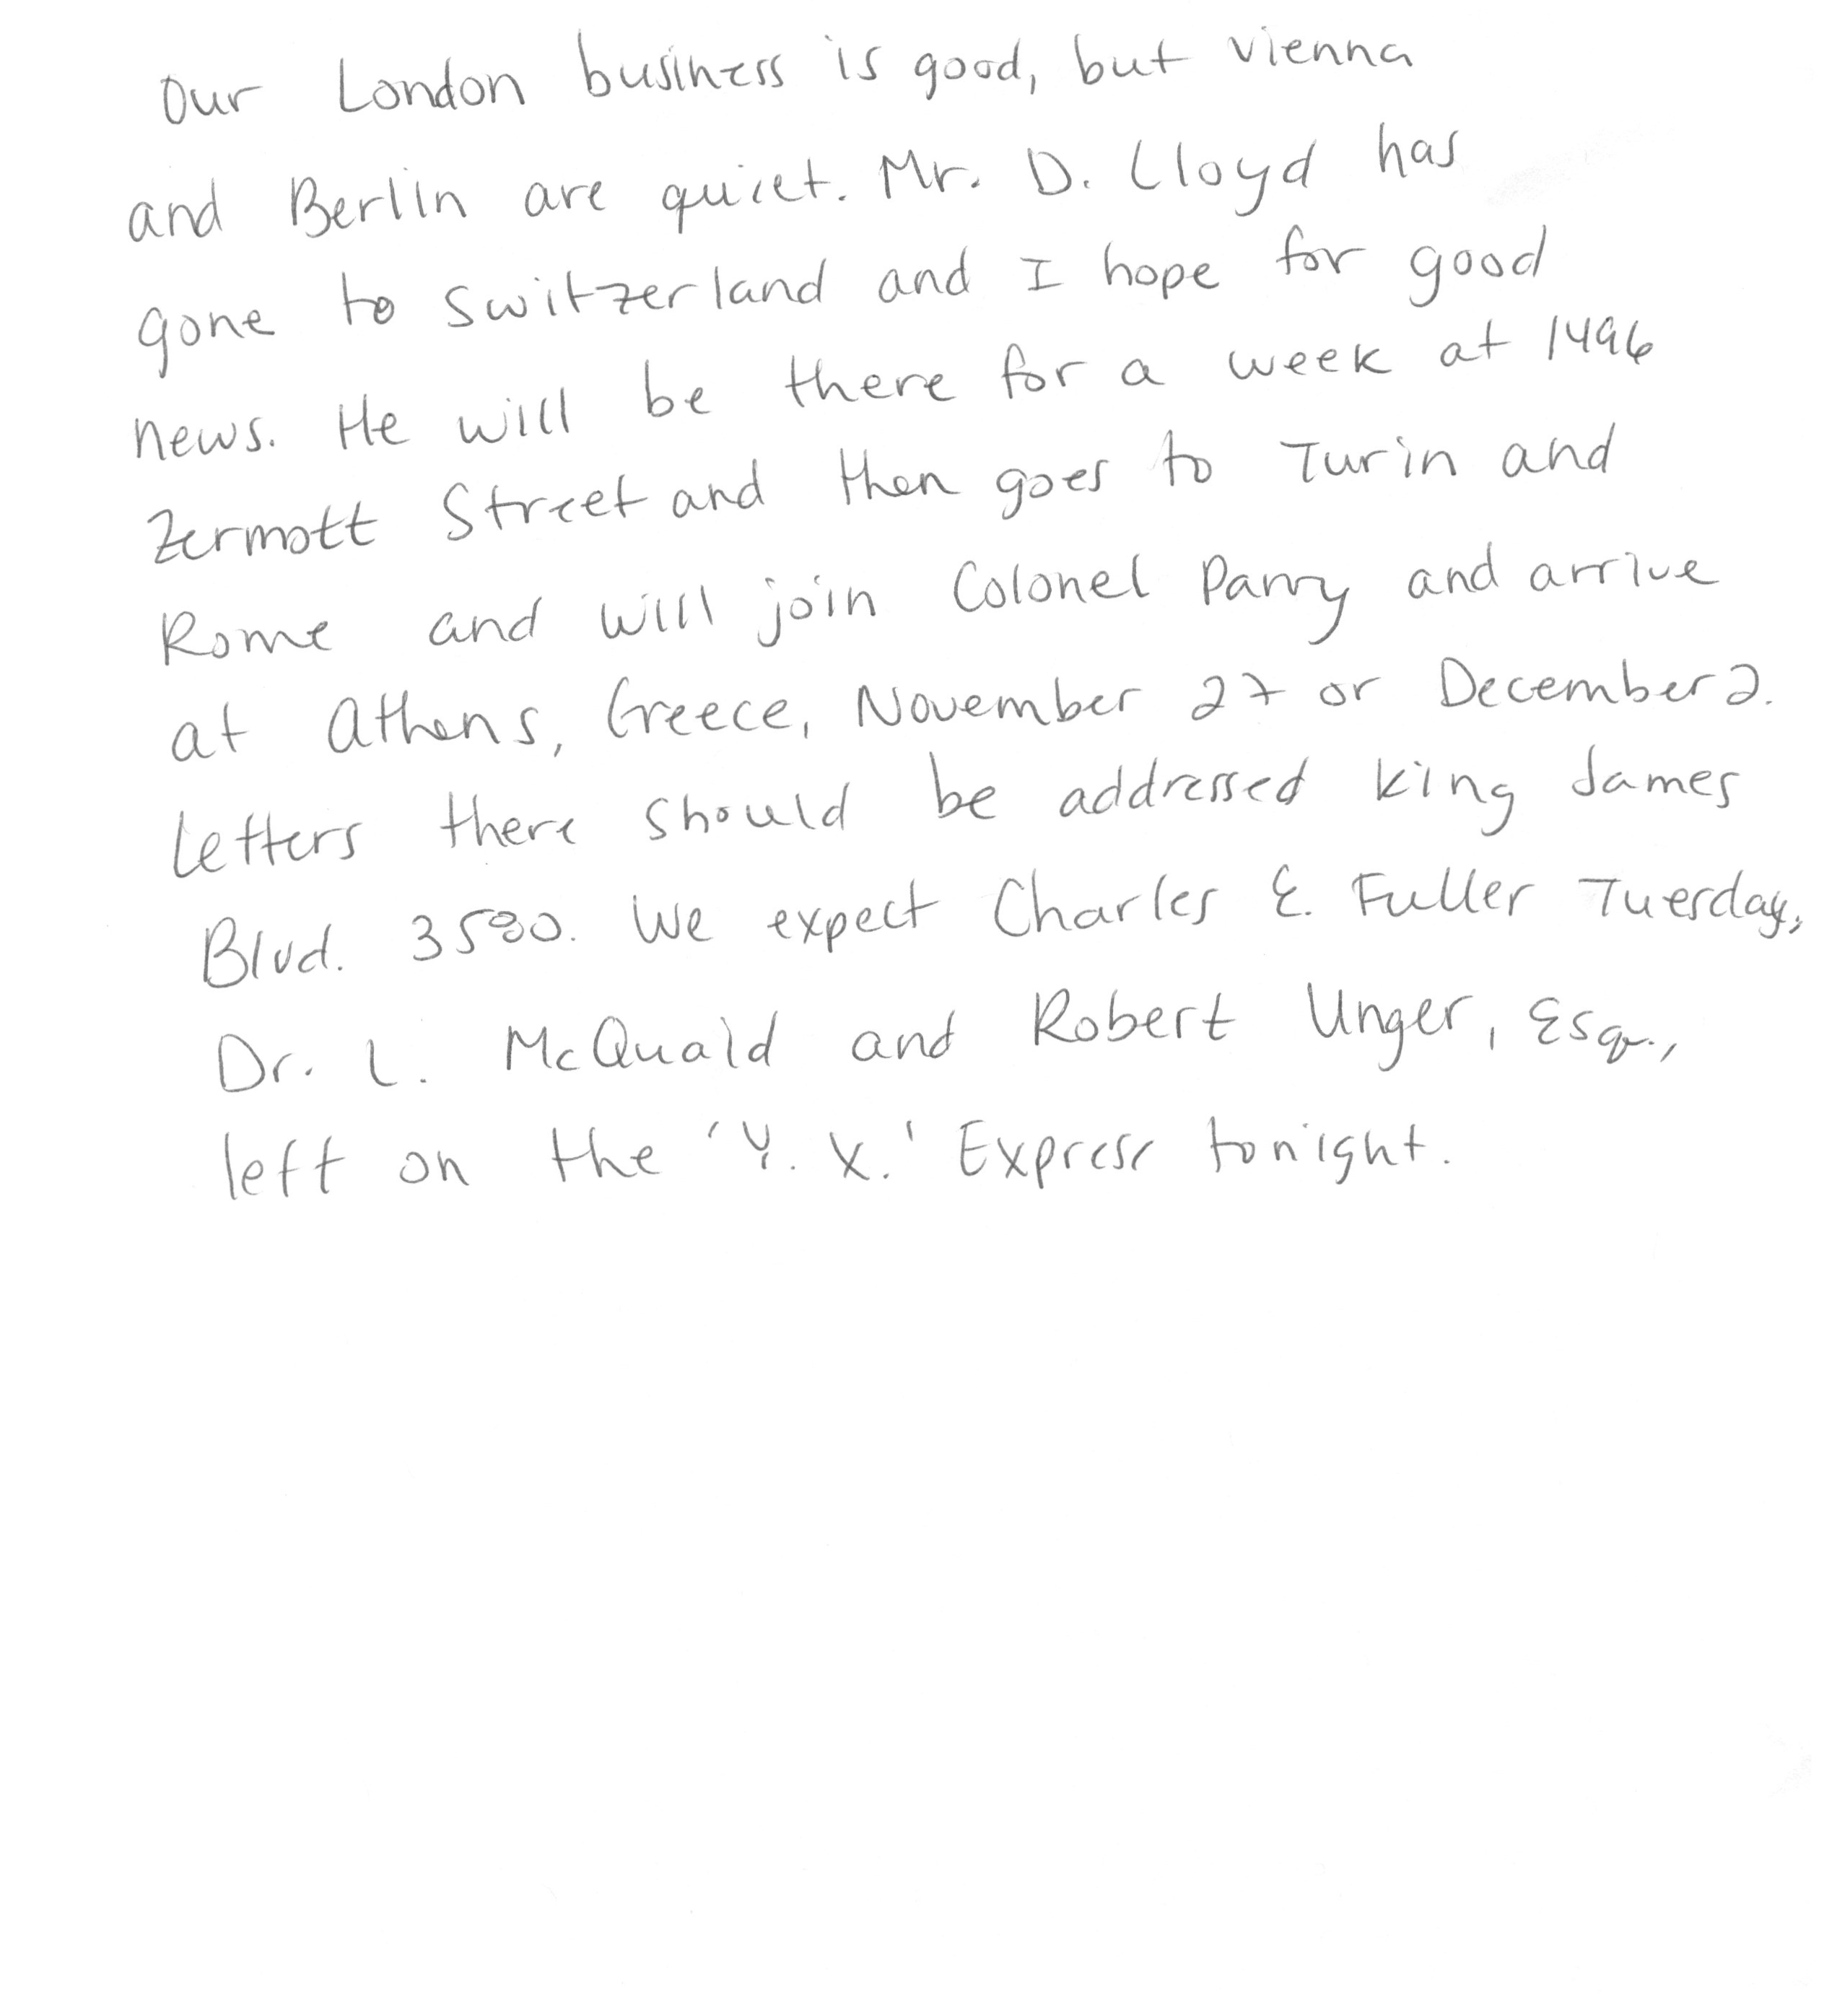 Our London business is good, but Vienna
and Berlin are quiet. Mr. D. Lloyd has
gone to Switzerland and I hope for good
news. He will be there for a week at 1496
Zermott Street and then goes to Turin and
Rome and will join Colonel Parry and arrive
at Athens, Greece, November 27 or December 2.
Letters there should be addressed King James
Blvd. 3580. We expect Charles E. Fuller Tuesday.
Dr. L. McQuaid and Robert Unger, Esq.,
left on the 'Y. X.' Express tonight.